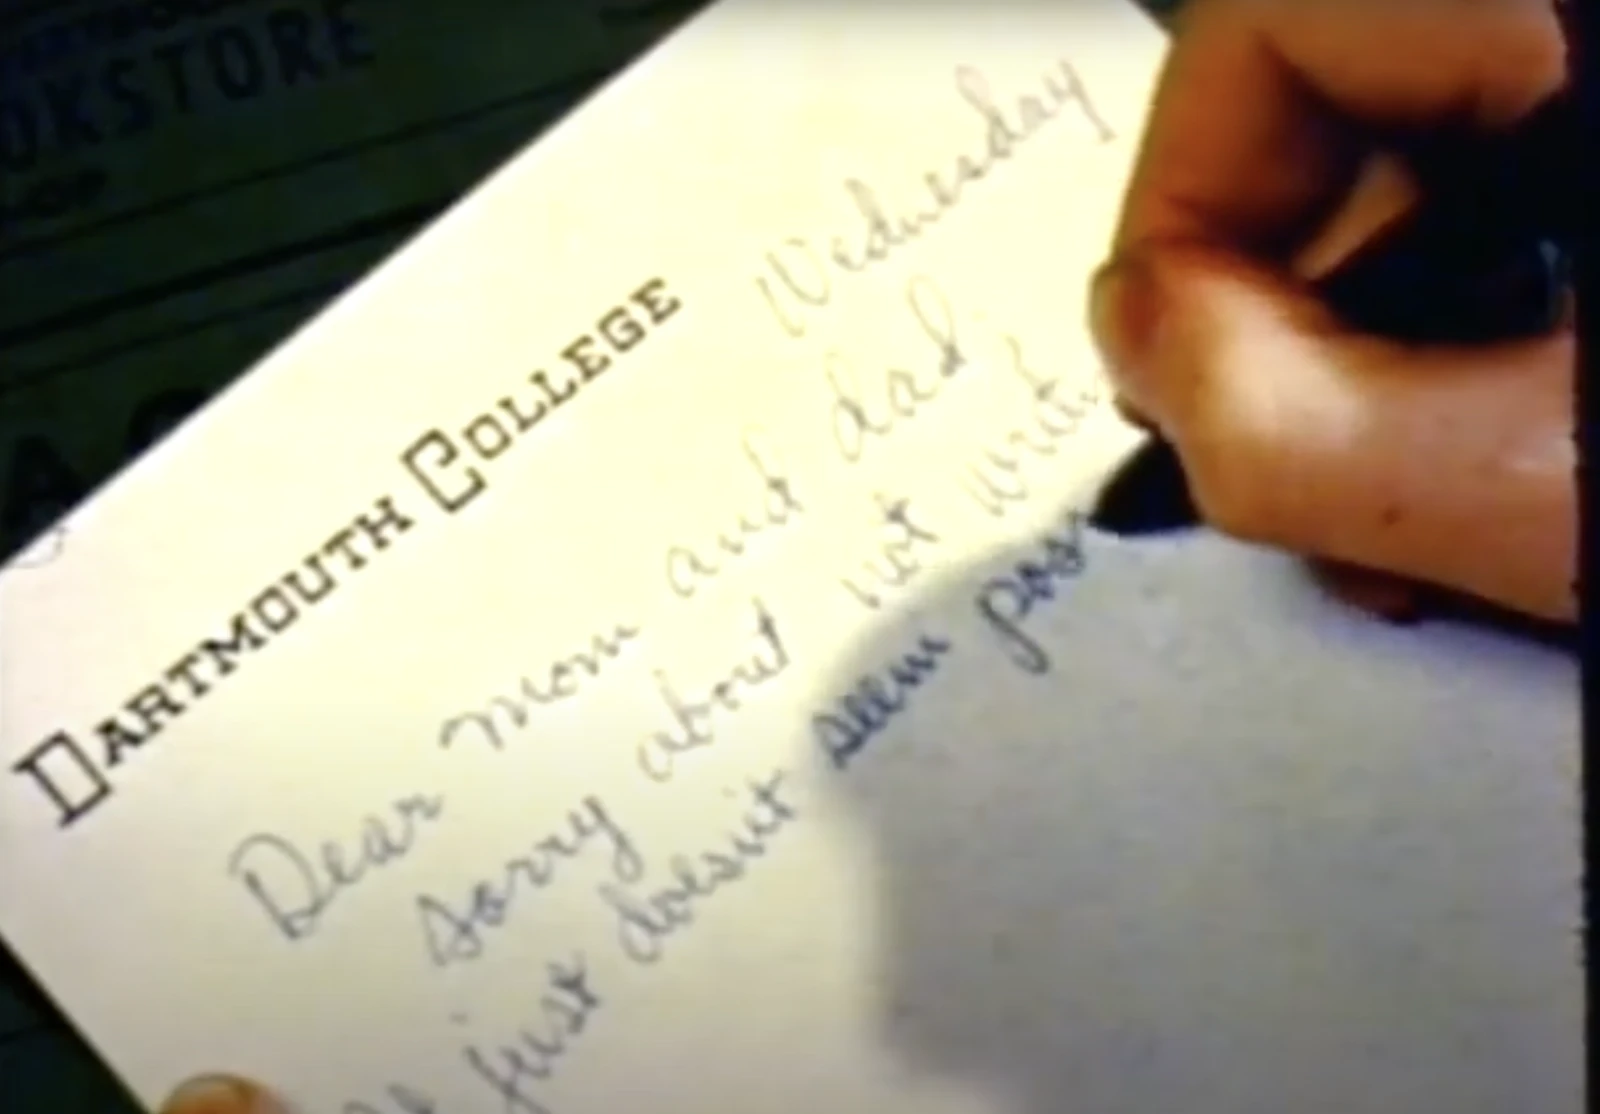 OKSTORE
DARTMOUTH COLLEGE
Wednesday
Dear Mom and dad,
sorry about not writ
It just doesn't seem poss